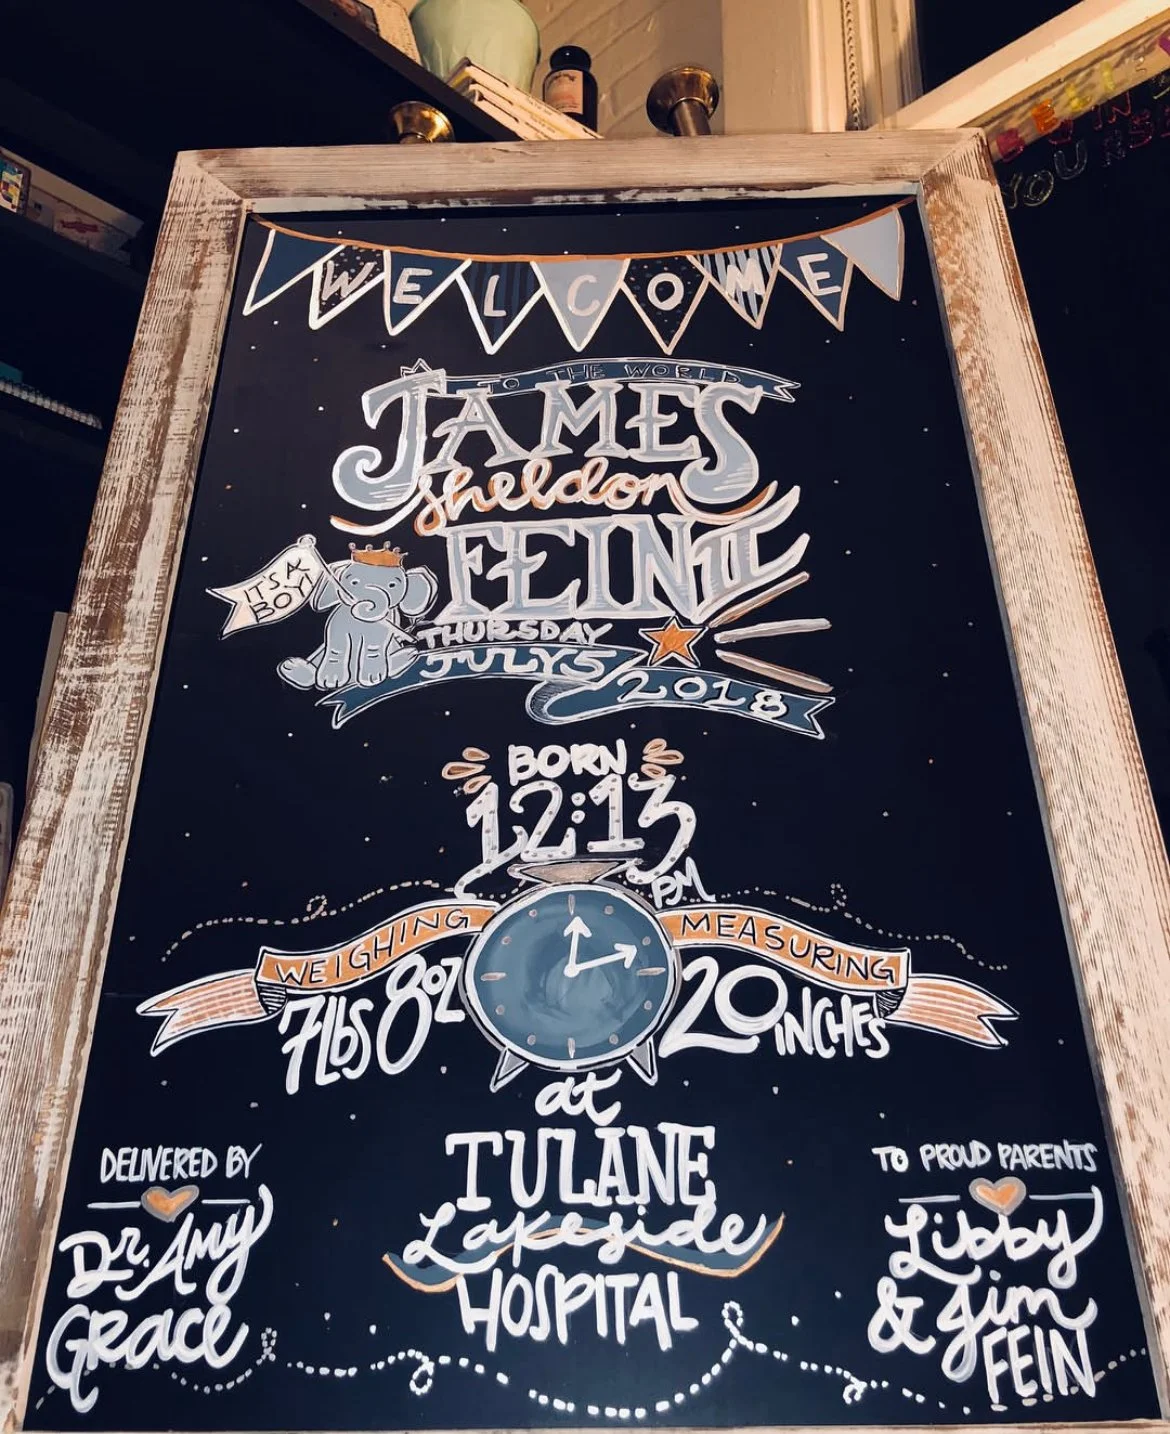 WELCOME
TO THE WORLD
JAMES
Sheldon
FEIN II
IT'S A
BOY!
THURSDAY
JULY 5
2018
BORN
12:13
PM
WEIGHING
7lbs 8oz
MEASURING
20 INCHES
at
TULANE
Lakeside
HOSPITAL
DELIVERED BY
Dr. Amy
Grace
TO PROUD PARENTS
Libby
& Jim
FEIN